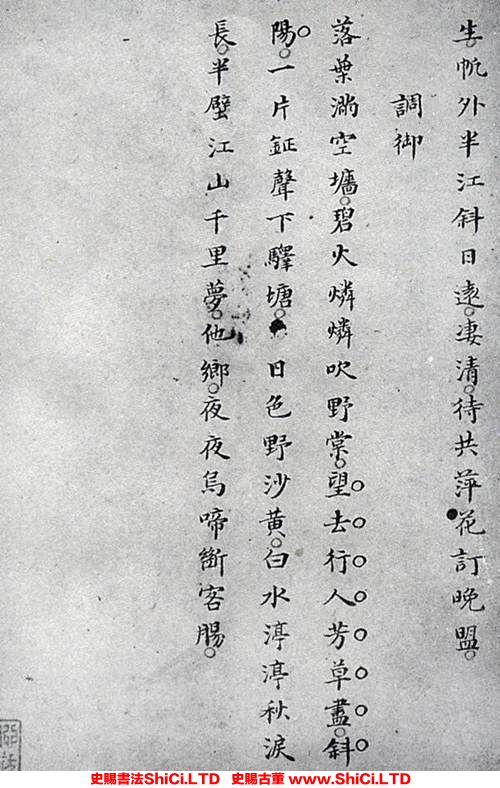 生帆外半江斜日遠淒清待共萍花訂晚盟
調御
落葉滿空墻碧火燐燐吹野棠望去行人芳草盡斜
陽一片鉦聲下驛塘日色野沙黃白水渟渟秋淚
長半壁江山千里夢他鄉夜夜烏啼斷客腸
史賜書法ShiCi.LTD 史賜古董 www.ShiCi.LTD